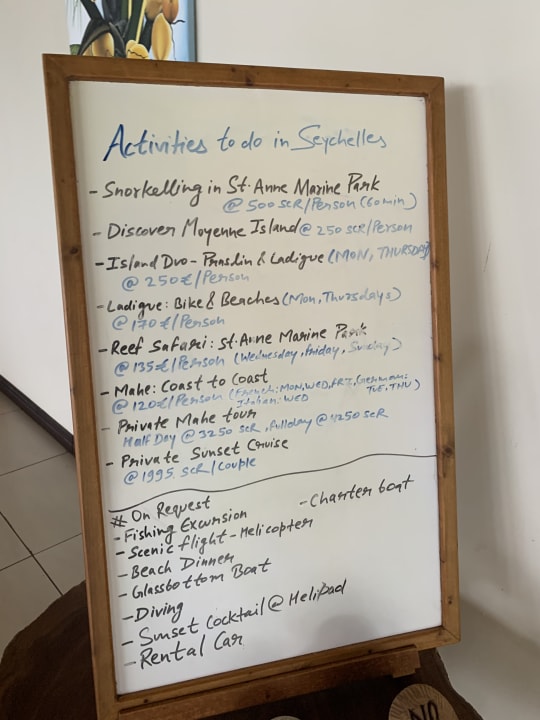 Activities to do in Seychelles
- Snorkelling in St. Anne Marine Park
@ 500 SCR/Person (60min)
- Discover Moyenne Island @ 250 SCR/Person
- Island Duo - Praslin & Ladigue (MON, THURSDAY)
@ 250€/Person
- Ladigue: Bike & Beaches (Mon, Thursdays)
@ 170€/Person
- Reef Safari: St. Anne Marine Park
@ 135€/Person (Wednesday, Friday, Sunday)
- Mahe: Coast to Coast
@ 120€/Person (French: MON, WED, FRI, German: TUE, THU)
Italian: WED
- Private Mahe tour
Half Day @ 3250 SCR, Fullday @ 4250 SCR
- Private Sunset Cruise
@ 1995 SCR/Couple
# On Request
- Charter boat
- Fishing Excursion
- Scenic flight - Helicopter
- Beach Dinner
- Glassbottom Boat
- Diving
- Sunset Cocktail @ Helipad
- Rental Car